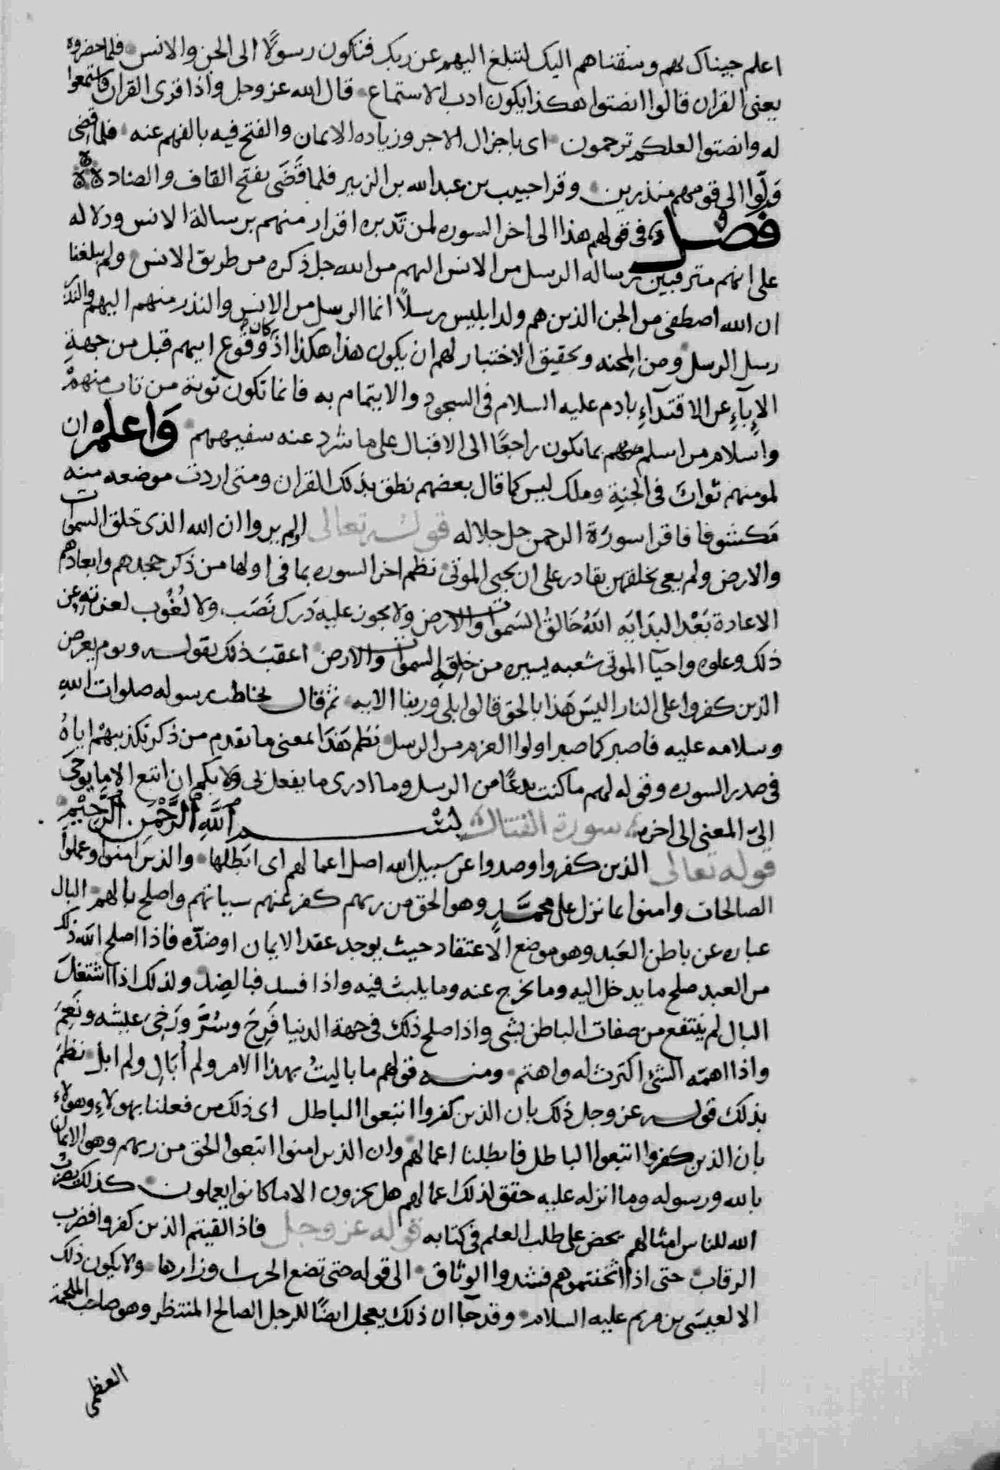 اعلم جيناك بهم وسقناهم اليك لتبلغ اليهم عن ربك فتكون رسولا الى الجن والانس فلما حضروه
يعني القران قالوا انصتوا هكذا يكون ادب الاستماع قال الله عز وجل واذا قرى القران فاستمعوا
له وانصتوا لعلكم ترحمون اى باجزال الاجر وزياده الايمان والفتح فيه بالفهم عنه فلما قضى
ولوا الى قومهم منذرين وقرا حبيب بن عبد الله بن الزبير فلما قَضَى بفتح القاف والضاد
فصل فى قولهم هذا الى اخر السوره لمن تدبره اقرار منهم برسالة الانس ودلاله
على انهم مترقبين رساله الرسل من الانس اليهم من الله جل ذكره من طريق الانس ولم يبلغنا
ان الله اصطفى من الجن الذين هم ولد ابليس رسلًا انما الرسل من الانس والنذر منهم اليهم والنذر
رسل الرسل ومن المحنه وتحقيق الاختبار لهم ان يكون هذا هكذا اذ كان وقوع ابيهم قبل من جهة
الإبآء عن الاقتدآء بادم عليه السلام فى السجود والايتمام به فانما تكون توبة من تاب منهم
واسلام من اسلم منهم بما يكون راجعًا الى الاقبال على ما شرد عنه سفيههم واعلم ان
لمومنهم ثوابًا فى الجنة وملك ليس كما قال بعضهم نطق بذلك القران ومتى اردت موضعه منه
مكشوفا فاقرا سورة الرحمن جل جلاله قوله تعالى اولم يروا ان الله الذى خلق السموات
والارض ولم يعى بخلقهن بقادر على ان يحيى الموتى نظم اخر السوره بما فى اولها من ذكر جحدهم وابعادهم
الاعادة بَعْد البدايه اللهُ خالق السموات والارض ولا يجوز عليه دَرَك نَصَب ولا لُغُوب لعزته عن
ذلك وعلوه واحيآ الموتى شعبه يسيره من خلق السموات والارض اعقب ذلك بقوله ويوم يعرض
الذين كفروا على النار اليس هذا بالحق قالوا بلى وربنا الايه ثم قال يخاطب رسوله صلوات الله
وسلامه عليه فاصبر كما صبر اولوا العزم من الرسل نظم هَذَا لمعنى ما تقدم من ذكر تكذيبهم اياهُ
فى صدر السوره وقوله لهم ما كنت بدعًا من الرسل وما ادرى ما يفعل بى ولا بكم ان اتبع الا ما يوحى
الىّ المعنى الى اخره سورة القتال بسم اللَّهِ الرَّحْمَنِ الرَّحِيمِ
قوله تعالى الذين كفروا وصدوا عن سبيل الله اضل اعمالهم اى ابطلها والذين امنوا وعملوا
الصالحات وامنوا بما نزل على محمَّدٍ وهو الحق من ربهم كفر عنهم سياتهم واصلح بالهم البال
عباره عن باطن العَبد وهو موضع الاعتقاد حيث يوجد عقد الايمان او ضدّه فاذا اصلح الله ذلك
من العبد صلح ما يدخل اليه وما يخرج عنه وما يلبث فيه واذا فسد فبالضد ولذلك اذا اشتغل
البال لم ينتفع من صفات الباطن بشى واذا صلح ذلك فى جهة الدنيا فَرِحَ وسُرَّ ورَخِىَ عيشه ونَعِمَ
واذا اهمّه الشئ اكترث له واهتم ومنه قولهم ما باليتُ بهذا الامر ولم أُبَالِ ولم ابل نظمَ
بذلك قوله عز وجل ذلك بان الذين كفروا اتبعوا الباطل اى ذلك من فعلنا بهولاء وهولاء
بان الذين كفروا اتبعوا الباطل فابطلنا اعمالهم وان الذين امنوا اتبعوا الحق من ربهم وهو الايمان
بالله ورسوله وما انزله عليه حقق لذلك اعمالهم هل يجزون الا ما كانوا يعملون كذلك يضرب
الله للناس امثالهم يحض على طلب العلم فى كتابه قوله عز وجل فاذا لقيتم الذين كفروا فضرب
الرقاب حتى اذا اثخنتموهم فشدوا الوثاق الى قوله حتى تضع الحرب اوزارها ولا يكون ذلك
الا لعيسَى بن مريم عليه السلام وقد جآ ان ذلك يعجل ايضًا للرجل الصالح المنتظر وهو صاحب الملحمة
العظمى